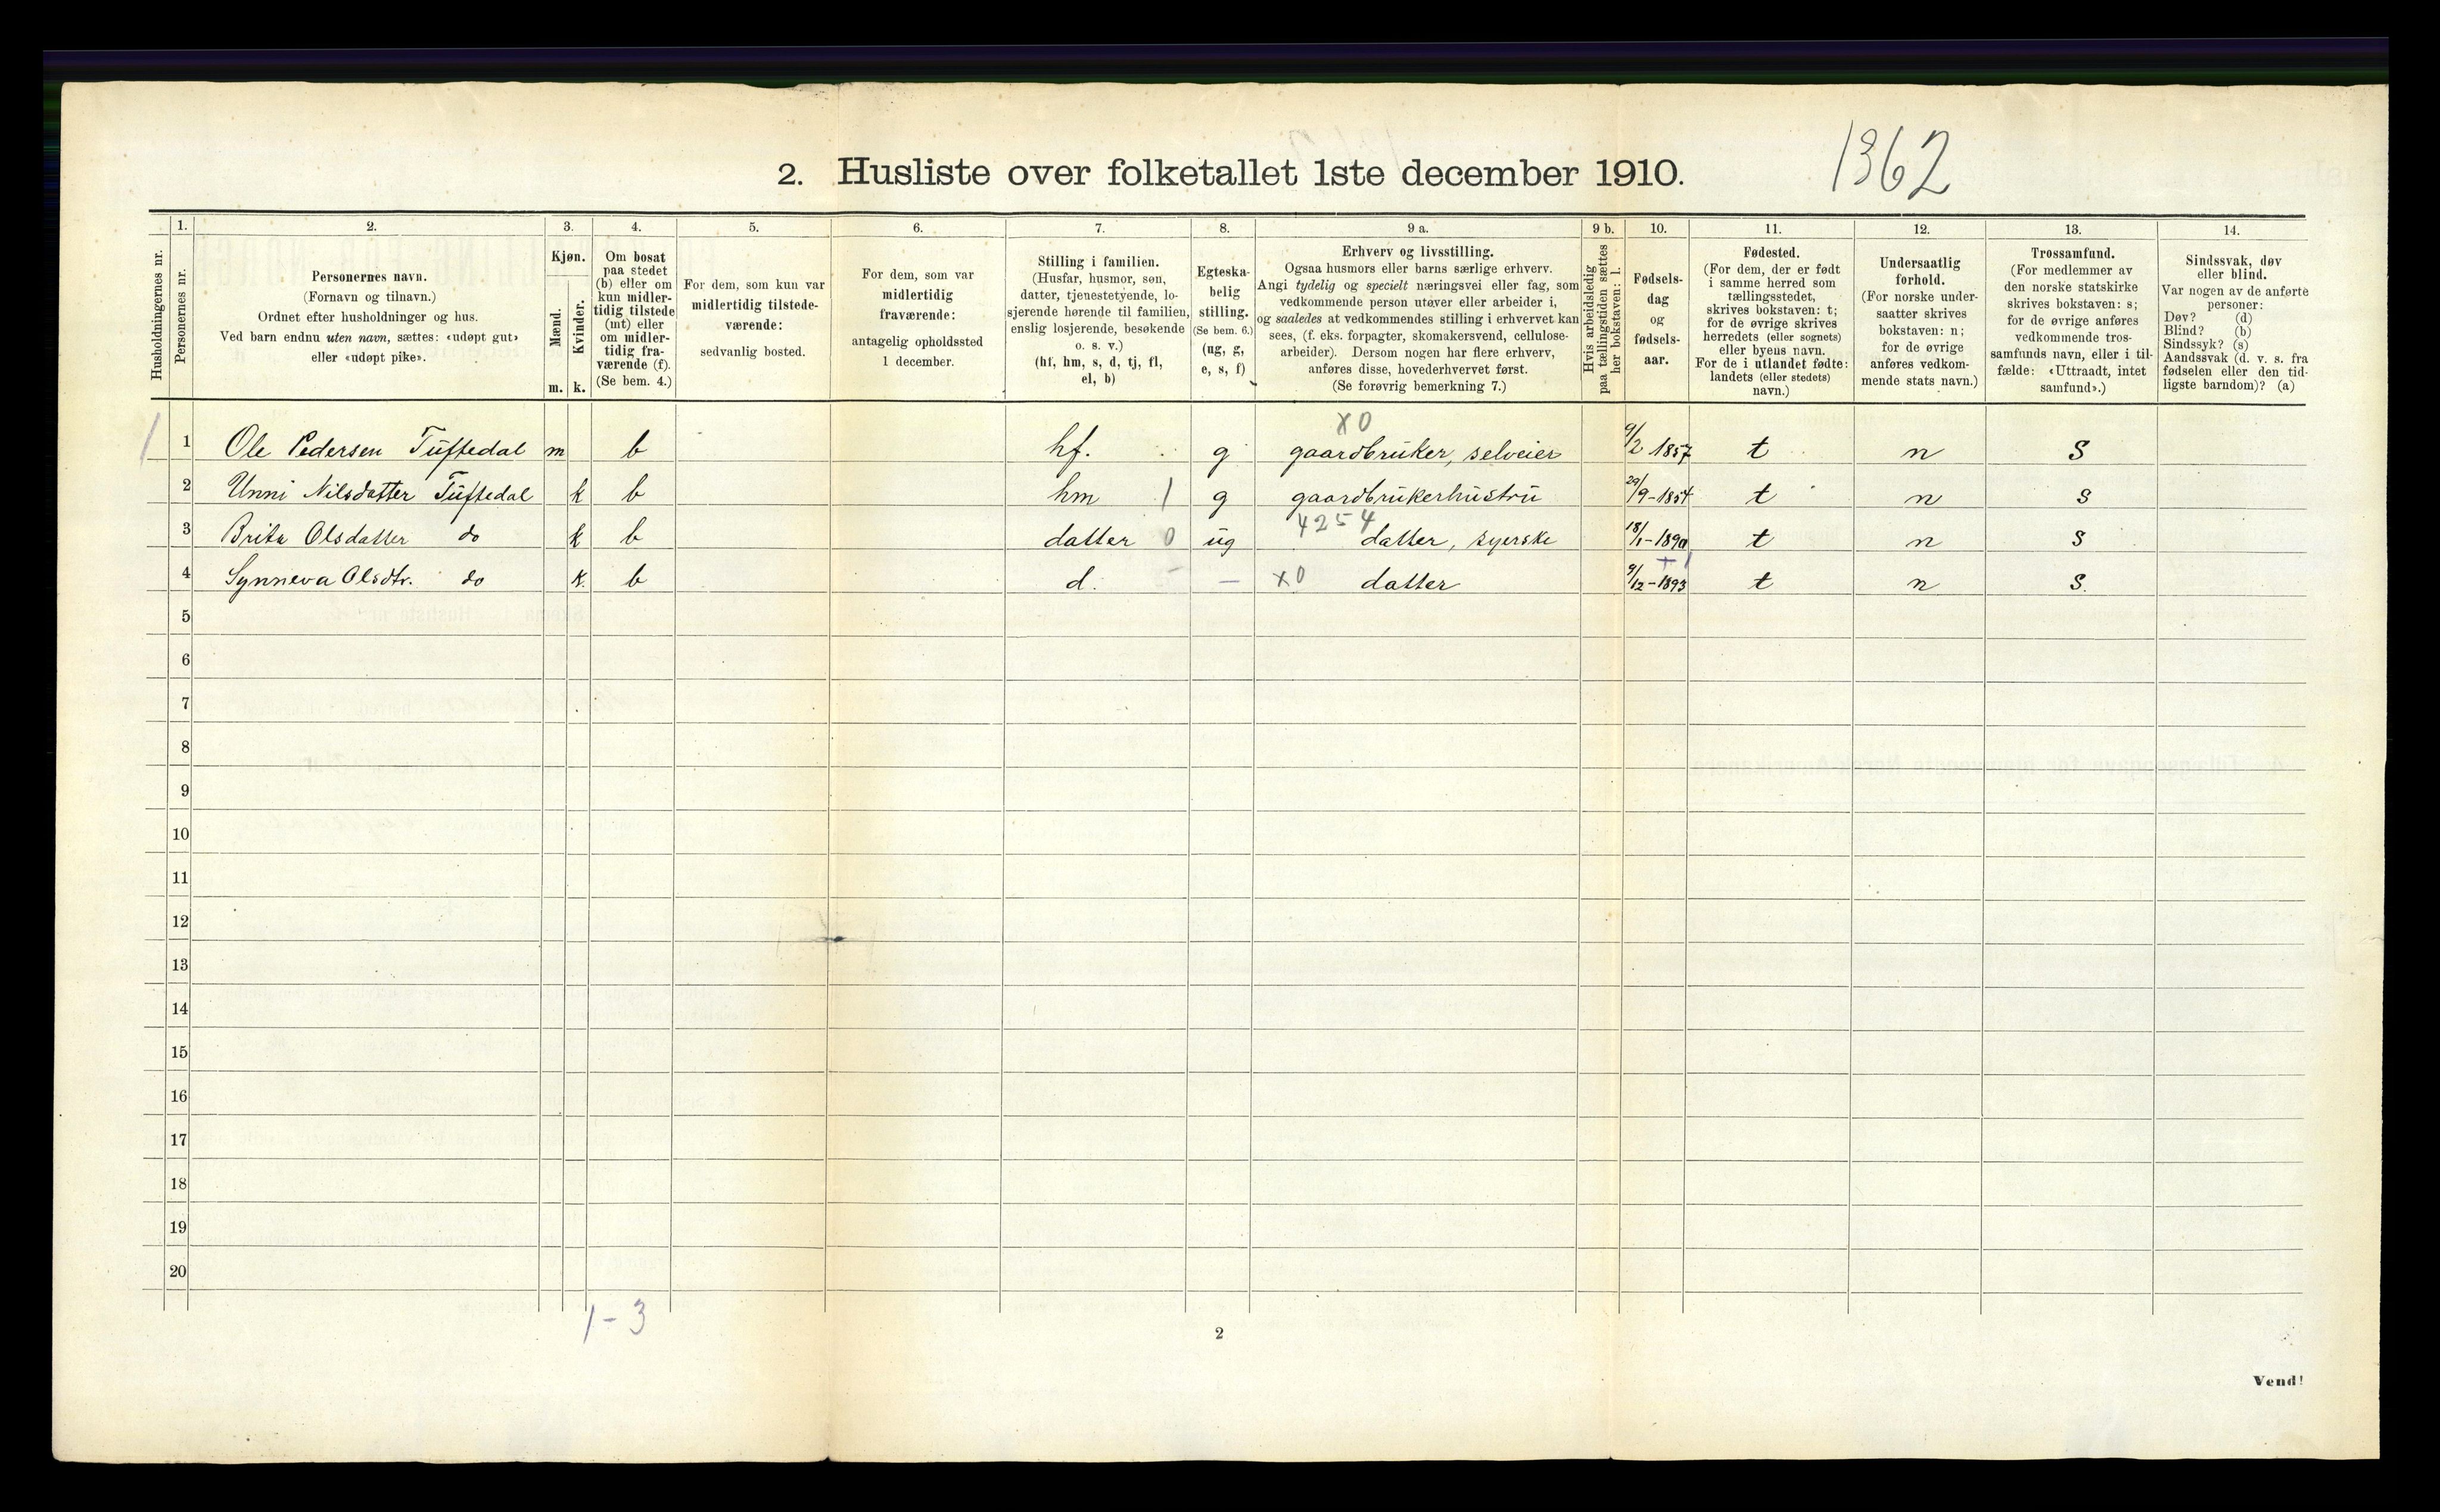 2. Husliste over folketallet 1ste december 1910.
1362
Husholdningernes nr.
1.
Personernes nr.
2.
Personernes navn.
(Fornavn og tilnavn.)
Ordnet efter husholdninger og hus.
Ved barn endnu uten navn, sættes: «udøpt gut»
eller «udøpt pike».
3.
Kjøn.
Mænd.
Kvinder.
m. k.
4.
Om bosat
paa stedet
(b) eller om
kun midler-
tidig tilstede
(mt) eller
om midler-
tidig fra-
værende (f).
(Se bem. 4.)
5.
For dem, som kun var
midlertidig tilstede-
værende:
sedvanlig bosted.
6.
For dem, som var
midlertidig
fraværende:
antagelig opholdssted
1 december.
7.
Stilling i familien.
(Husfar, husmor, søn,
datter, tjenestetyende, lo-
sjerende hørende til familien,
enslig losjerende, besøkende
o. s. v.)
(hf, hm, s, d, tj, fl,
el, b)
8.
Egteska-
belig
stilling.
(Se bem. 6.)
(ug, g,
e, s, f)
9 a.
Erhverv og livsstilling.
Ogsaa husmors eller barns særlige erhverv.
Angi tydelig og specielt næringsvei eller fag, som
vedkommende person utøver eller arbeider i,
og saaledes at vedkommendes stilling i erhvervet kan
sees, (f. eks. forpagter, skomakersvend, cellulose-
arbeider). Dersom nogen har flere erhverv,
anføres disse, hovederhvervet først.
(Se forøvrig bemerkning 7.)
9 b.
Hvis arbeidsledig
paa tællingstiden sættes
her bokstaven: l.
10.
Fødsels-
dag
og
fødsels-
aar.
11.
Fødested.
(For dem, der er født
i samme herred som
tællingsstedet,
skrives bokstaven: t;
for de øvrige skrives
herredets (eller sognets)
eller byens navn.
For de i utlandet fødte:
landets (eller stedets)
navn.)
12.
Undersaatlig
forhold.
(For norske under-
saatter skrives
bokstaven: n;
for de øvrige
anføres vedkom-
mende stats navn.)
13.
Trossamfund.
(For medlemmer av
den norske statskirke
skrives bokstaven: s;
for de øvrige anføres
vedkommende tros-
samfunds navn, eller i til-
fælde: «Uttraadt, intet
samfund».)
14.
Sindssvak, døv
eller blind.
Var nogen av de anførte
personer:
Døv? (d)
Blind? (b)
Sindssyk? (s)
Aandssvak (d. v. s. fra
fødselen eller den tid-
ligste barndom)? (a)
X0
1 1 Ole Pedersen Tuftedal m b hf. g gaardbruker, selveier 9/2 1857 t n s
2 Unni Nilsdatter Tuftedal k b hm 1 g gaardbrukerhustru 29/9-1854 t n s
4254
3 Brita Olsdatter do k b datter 0 ug datter, syerske 18/1-1890 t n s
+1
4 Synneva Olsdtr. do k. b d. - — x0 datter 9/12-1893 t n s.
5
6
7
8
9
10
11
12
13
14
15
16
17
18
19
20
1-3
2
Vend!